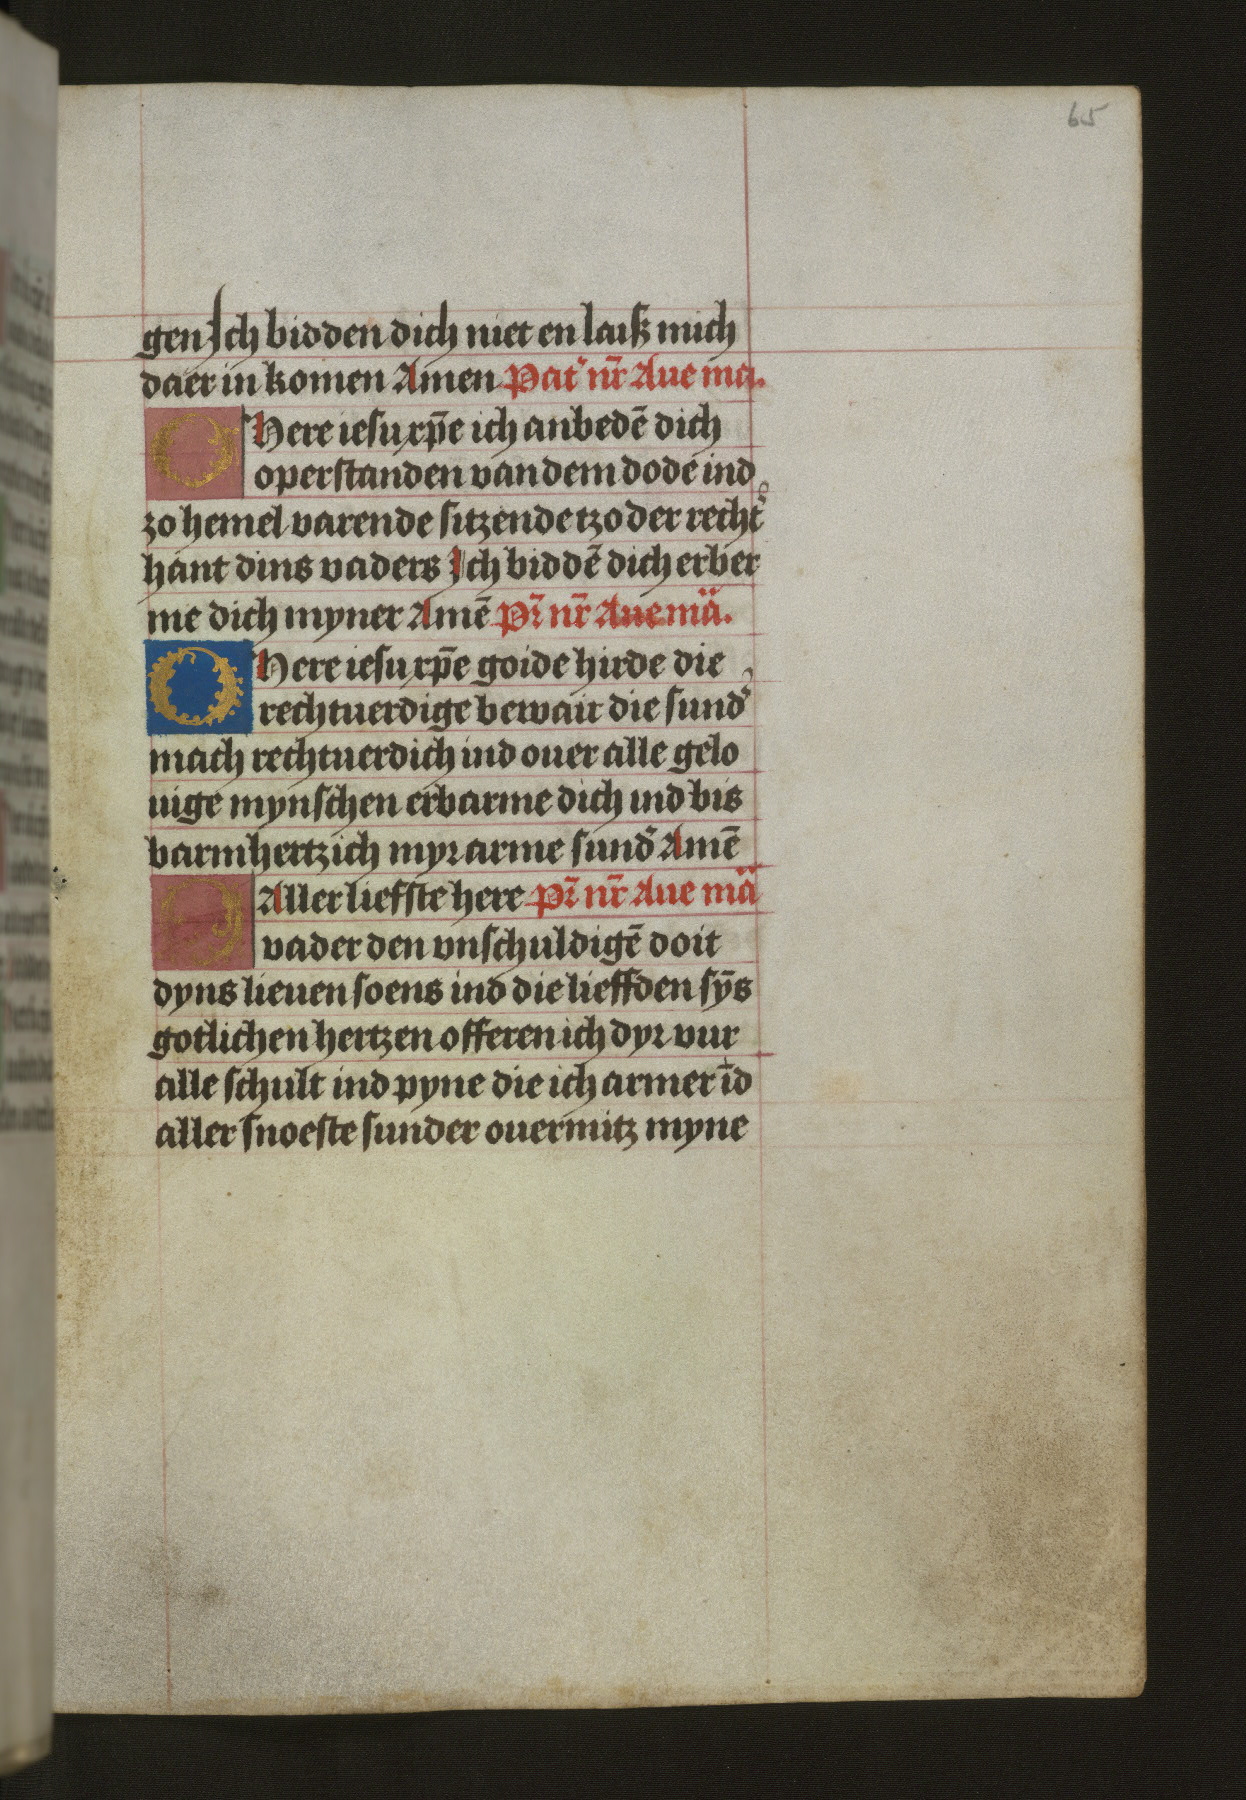 65
gen Ich bidden dich niet en laiß mich
daer in komen Amen Pat' nr̄ Aue ma.
O Here iesu xp̄e ich anbedē dich
operstanden van dem dode ind
zo hemel varende sitzende tzo der recht'
hant dins vaders Ich biddē dich erber
me dich myner Amē Pr̄ nr̄ Aue mā.
O Here iesu xp̄e goide hirde die
rechtuerdige bewair die sund'
mach rechtuerdich ind ouer alle gelo
uige mynschen erbarme dich ind bis
barmhertzich myr arme sund' Amē
O Aller liefste here pr̄ nr̄ Aue mā
vader den vnschuldigē doit
dyns lieuen soens ind die lieffden sȳs
gotlichen hertzen offeren ich dyr vur
alle schult ind pyne die ich armer īd
aller snoeste sunder ouermitz myne